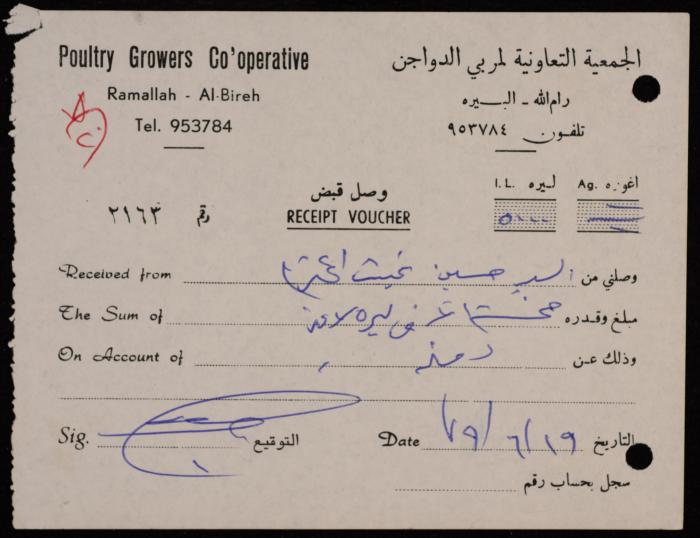 Poultry Growers Co'operative
الجمعية التعاونية لمربي الدواجن
Ramallah - Al-Bireh
رام الله - البيره
Tel. 953784
تلفون ٩٥٣٧٨٤
ليره I.L.
اغوره Ag.
وصل قبض
RECEIPT VOUCHER
رقم ٢١٦٣
Received from
وصلني من السيد حسين
The Sum of
مبلغ وقدره
ليره
On Account of
وذلك عن
Sig.
التوقيع
Date
التاريخ ١٩/٦/٧٩
سجل بحساب رقم